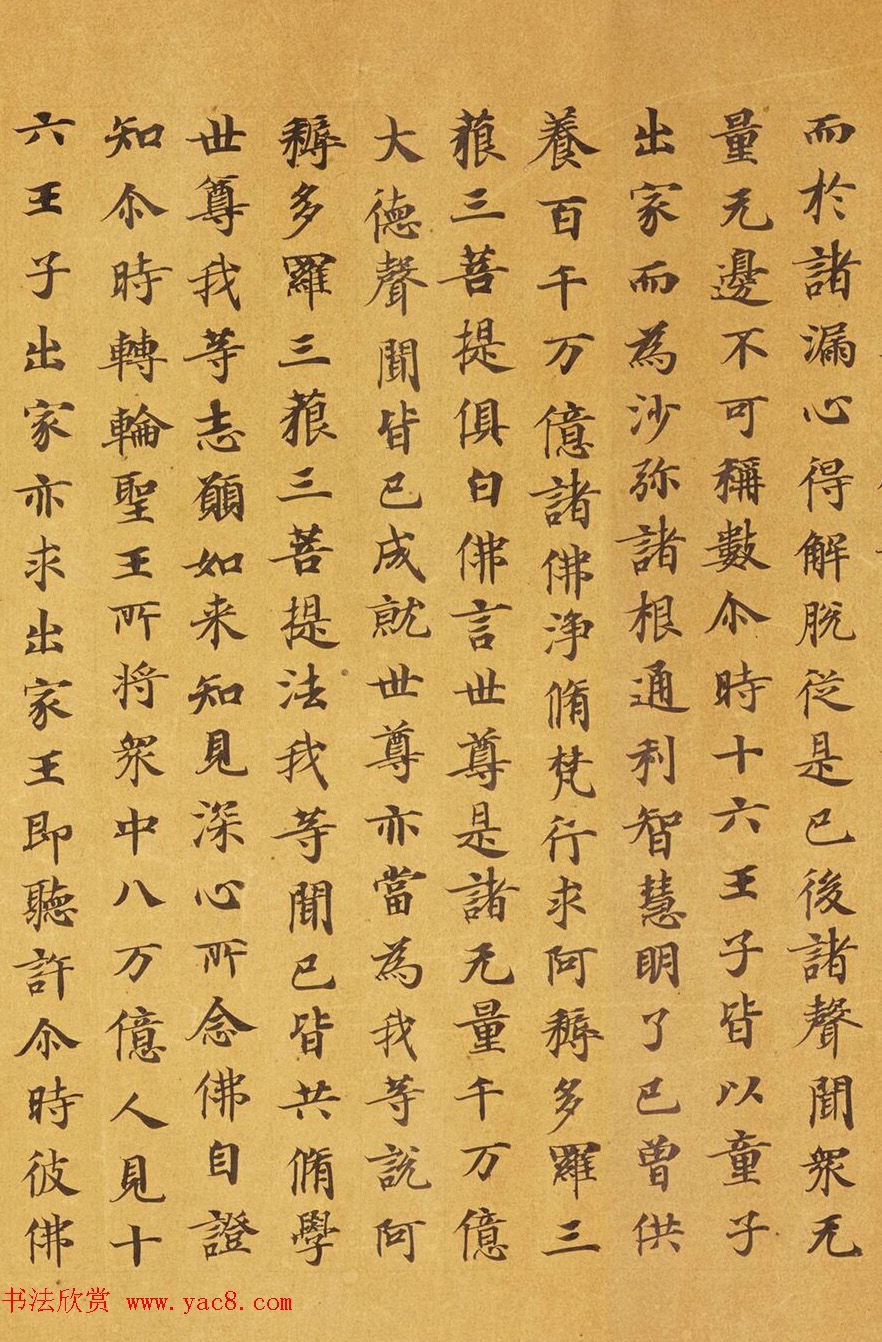 而於諸漏心得解脱従是已後諸聲聞衆无
量无邊不可稱數尒時十六王子皆以童子
出家而為沙弥諸根通利智慧明了已曾供
養百千万億諸佛浄脩梵行求阿耨多羅三
藐三菩提俱白佛言世尊是諸无量千万億
大德聲聞皆已成就世尊亦當為我等說阿
耨多羅三藐三菩提法我等聞已皆共脩學
世尊我等志願如来知見深心所念佛自證
知尒時轉輪聖王所将衆中八万億人見十
六王子出家亦求出家王即聽許尒時彼佛
书法欣赏 www.yac8.com